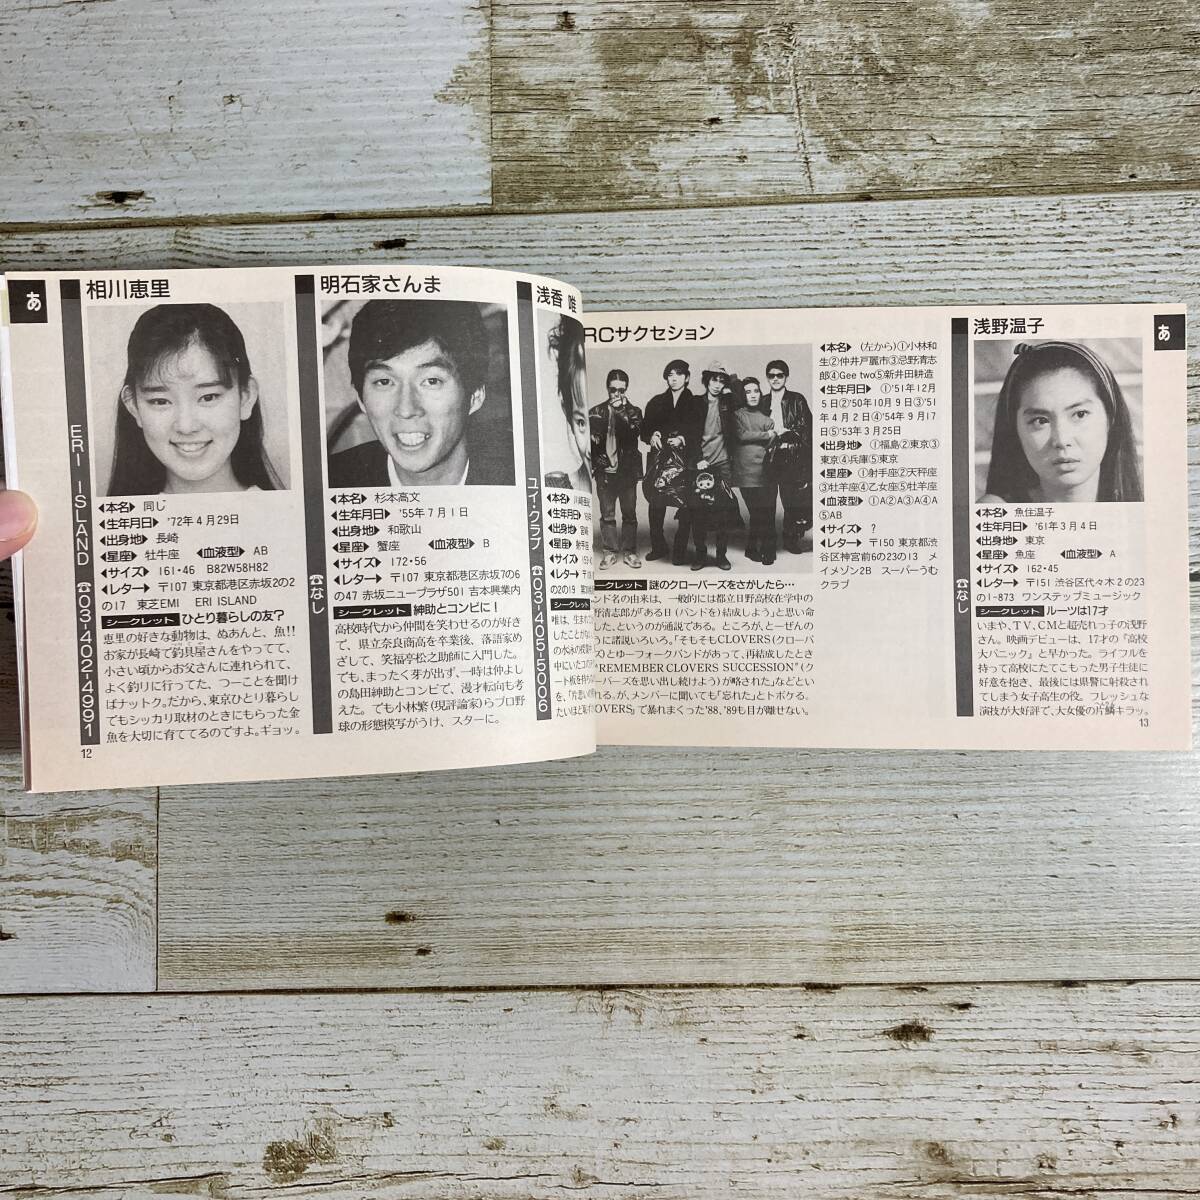 あ
相川恵里
ERI ISLAND ☎03-402-4991
◀本名▶ 同じ
◀生年月日▶ '72年4月29日
◀出身地▶ 長崎
◀星座▶ 牡牛座 ◀血液型▶ AB
◀サイズ▶ 161・46 B82W58H82
◀レター▶ 〒107 東京都港区赤坂2の2
の17 東芝EMI ERI ISLAND
シークレット ひとり暮らしの友?
恵里の好きな動物は、ぬあんと、魚!!
お家が長崎で釣具屋さんをやってて、
小さい頃からお父さんに連れられて、
よく釣りに行ってた、つーことを聞け
ばナットク。だから、東京ひとり暮らし
でもシッカリ取材のときにもらった金
魚を大切に育ててるのですよ。ギョッ。
12
明石家さんま
☎なし
◀本名▶ 杉本高文
◀生年月日▶ '55年7月1日
◀出身地▶ 和歌山
◀星座▶ 蟹座 ◀血液型▶ B
◀サイズ▶ 172・56
◀レター▶ 〒107 東京都港区赤坂7の6
の47 赤坂ニュープラザ501 吉本興業内
シークレット 紳助とコンビに!
高校時代から仲間を笑わせるのが好き
で、県立奈良商高を卒業後、落語家め
ざして、笑福亭松之助師に入門した。
でも、まったく芽が出ず、一時は仲よし
の島田紳助とコンビで、漫才転向も考
えた。でも小林繁(現評論家)らプロ野
球の形態模写がうけ、スターに。
浅香 唯
ユイ・クラブ ☎03-405-5006
◀本名▶
◀生年月日▶
◀出身地▶
◀星座▶
◀サイズ▶
◀レター▶
シークレット
RCサクセション
◀本名▶ (左から)①小林和
生②仲井戸麗市③忌野清志
郎④Gee two⑤新井田耕造
◀生年月日▶ ①'51年12月
5日②'50年10月9日③'51
年4月2日④'54年9月17
日⑤'53年3月25日
◀出身地▶ ①福島②東京③
東京④兵庫⑤東京
◀星座▶ ①射手座②天秤座
③牡羊座④乙女座⑤牡羊座
◀血液型▶ ①A②A③A④A
⑤AB
◀サイズ▶ ?
◀レター▶ 〒150 東京都渋
谷区神宮前6の23の13 メ
イメゾン2B スーパーうむ
クラブ
シークレット 謎のクローバーズをさがしたら…
ンド名の由来は、一般的には都立日野高校在学中の
野清志郎が「ある日(バンドを)結成しよう」と思い命
した、というのが通説である。ところが、とーぜんの
つに諸説いろいろ。「そもそもCLOVERS(クローバ
ズ)とゆーフォークバンドがあって、再結成したとき
REMEMBER CLOVERS SUCCESSION"(ク
ーバーズを思い出し続けよう)が略された」などとい
れる。が、メンバーに聞いても「忘れた」とトボケる。
OVERS」で暴れまくった'88、'89も目が離せない。
浅野温子
☎なし
◀本名▶ 魚住温子
◀生年月日▶ '61年3月4日
◀出身地▶ 東京
◀星座▶ 魚座 ◀血液型▶ A
◀サイズ▶ 162・45
◀レター▶ 〒151 渋谷区代々木2の23
の1-873 ワンステップミュージック
シークレット ルーツは17才
いまや、TV、CMと超売れっ子の浅野
さん。映画デビューは、17才の「高校
大パニック」と早かった。ライフルを
持って高校にたてこもった男子生徒に
好意を抱き、最後には県警に射殺され
てしまう女子高生の役。フレッシュな
演技が大好評で、大女優の片鱗キラッ。
13
あ